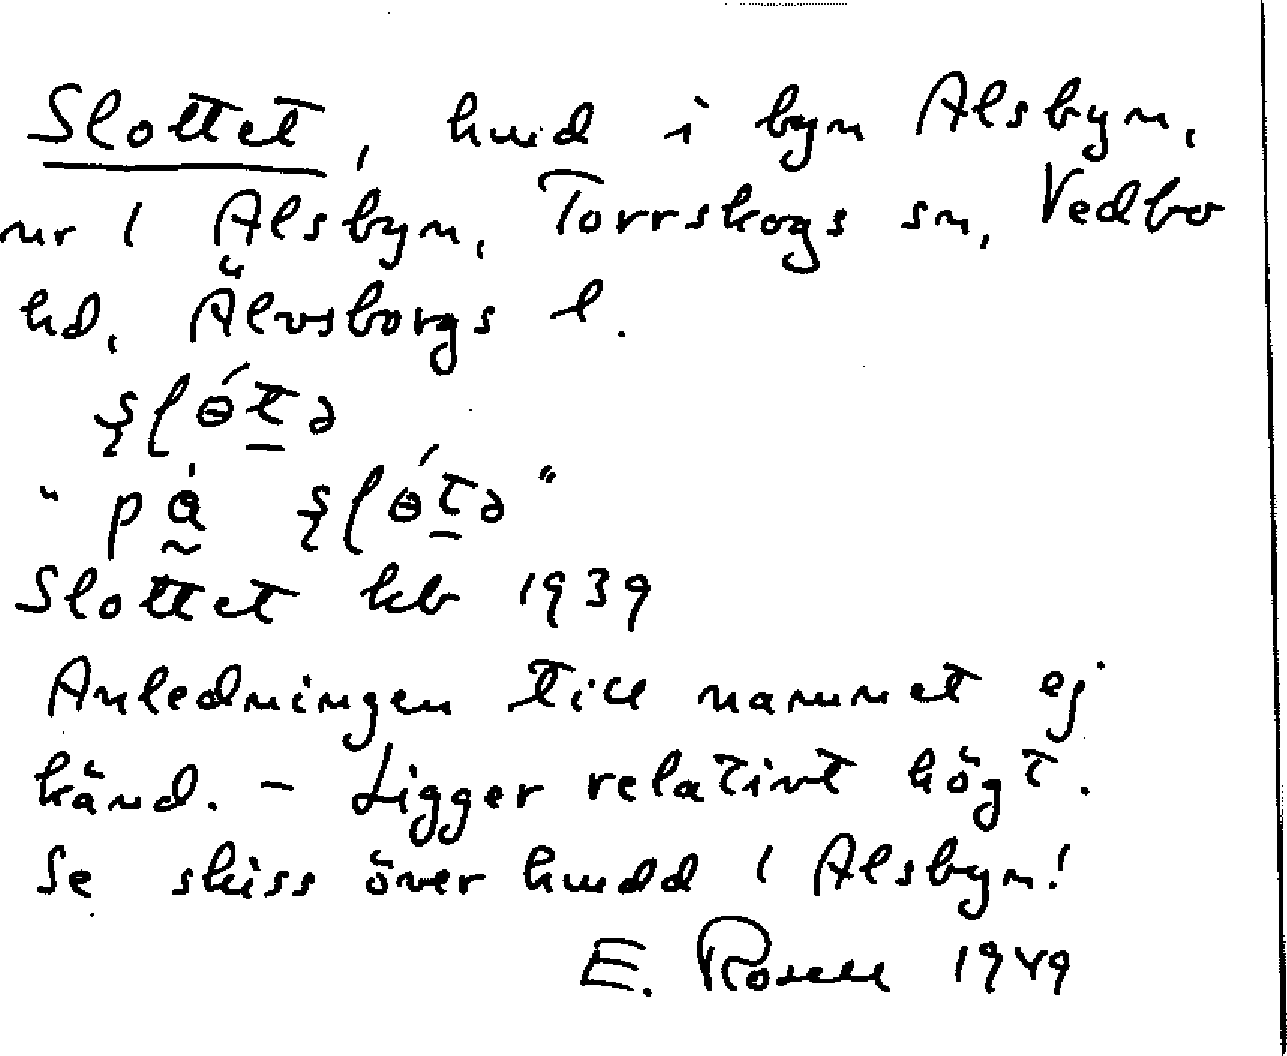 Slottet, hmd i byn Alsbyn,
nr 1 Alsbyn, Torrskogs sn, Vedbo
hd, Älvsborgs l.
ʂɭɵ́tə
"på ʂɭɵ́tə"
Slottet kb 1939
Anledningen till namnet ej
känd. - Ligger relativt högt.
Se skiss över hmdd i Alsbyn!
E. Rosell 1949